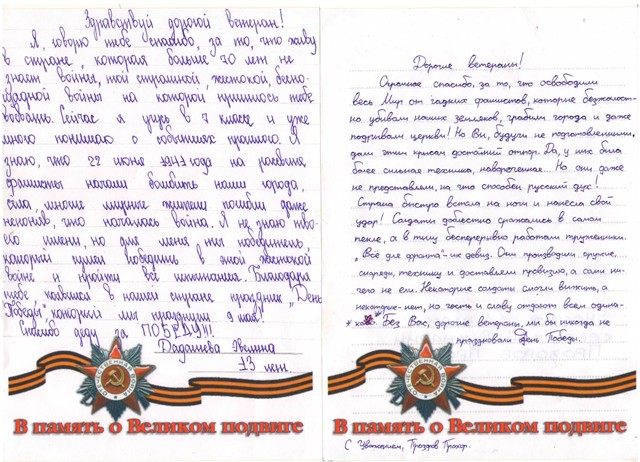 Здравствуй дорогой ветеран!
Я, говорю тебе спасибо, за то, что живу
в стране, которая больше 70 лет не
знает войны, той страшной, жестокой, беспо-
щадной войны на которой пришлось тебе
воевать. Сейчас я учусь в 7 классе и уже
много понимаю о событиях прошлого. Я
знаю, что 22 июня 1941 года на рассвете
фашисты начали бомбить наши города,
сёла, многие мирные жители погибли даже
непоняв, что началась война. Я не знаю тво-
его имени, но для меня ты победитель,
который сумел победить в этой жестокой
войне и пройти все испытания. Благодаря
тебе появился в нашей стране праздник "День
Победы", который мы празднуем 9 мая!
Спасибо деду за ПОБЕДУ!!!
Дадашева Эвелина
13 лет.
В память о Великом подвиге
Дорогие ветераны!
Огромное спасибо, за то, что освободили
весь Мир от гадких фашистов, которые безжалост-
но убивали наших земляков, грабили города и даже
подрывали церкви! Но Вы, будучи не подготовленными,
дали этим крысам достойный отпор. Да, у них была
более сильная техника, навороченная. Но они даже
не представляли, на что способен русский дух!
Страна быстро встала на ноги и нанесла свой
удар! Солдаты доблестно сражались в самом
пекле, а в тылу бесперерывно работали труженники.
"Всё для фронта"-их девиз. Они производили оружие,
снаряды, технику и доставляли провизию, а сами ни-
чего не ели. Некоторые солдаты смогли выжить, а
некоторые-нет, но честь и славу отдают всем одина-
ково. Без Вас, дорогие ветераны, мы бы никогда не
праздновали День Победы.
В память о Великом подвиге
С Уважением, Прохор.